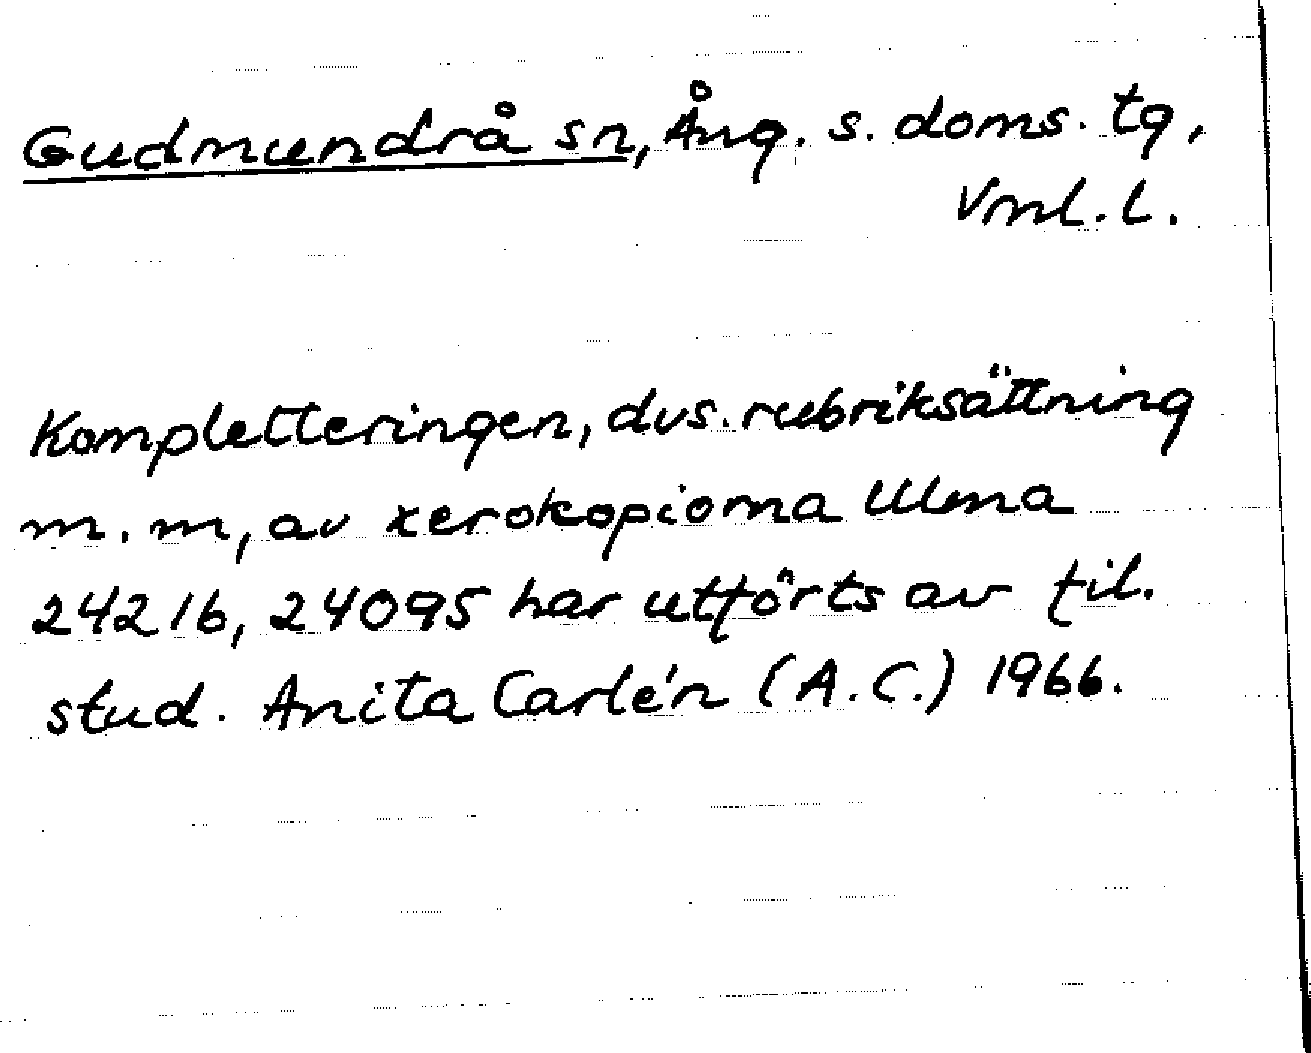 Gudmundrå sn, Ång. s. doms. tg,
Vml. l.
Kompletteringen, dvs. rubriksättning
m. m, av xerokopiorna Ulma
24216, 24095 har utförts av fil.
stud. Anita Carlén (A.C.) 1966.